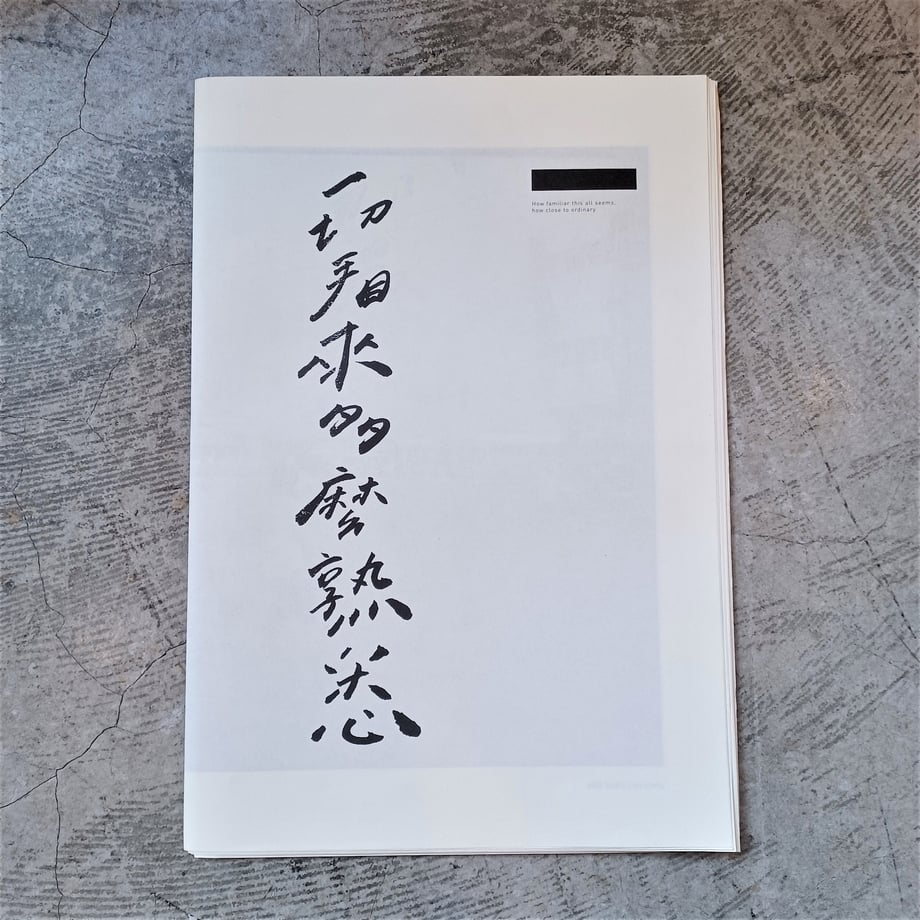 一切看來多麼熟悉
How familiar this all seems,
how close to ordinary